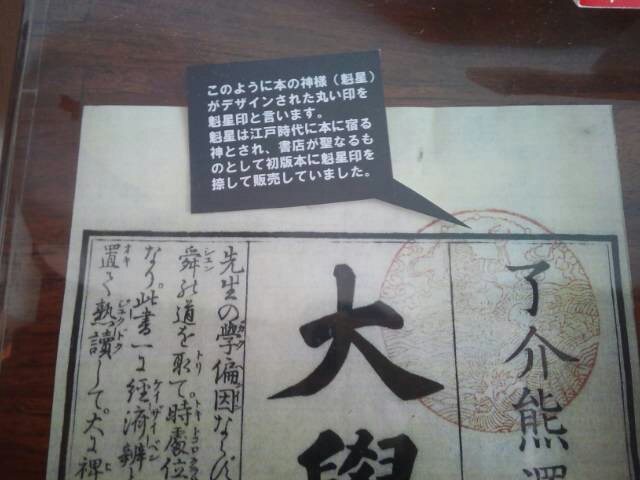 このように本の神様（魁星）
がデザインされた丸い印を
魁星印と言います。
魁星は江戸時代に本に宿る
神とされ、書店が聖なるも
のとして初版本に魁星印を
捺して販売していました。
了介熊澤
大學
先生の學偏因ならず
舜の道を取て時處位
なり此書一に経済辨
置て熟讀して大に裨